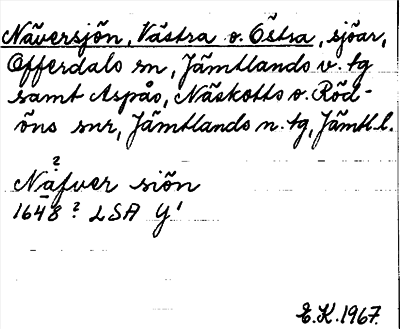 Näversjön, Västra o. Östra, sjöar,
Offerdals sn, Jämtlands v. tg
samt Aspås, Näskotts o. Röd-
öns snr, Jämtlands n. tg, Jämtl. l.
?
Nafver siön
1648 ? LSA Y'
E.K. 1967.